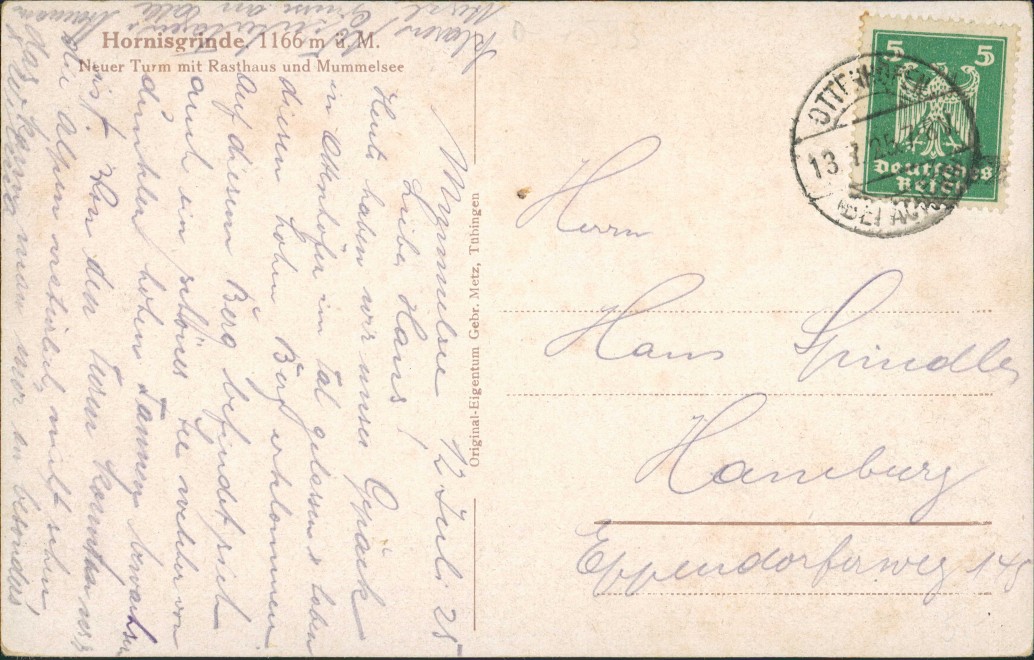 Hornisgrinde, 1166 m ü. M.
Neuer Turm mit Rasthaus und Mummelsee
Mummelsee 12 Juli 25
Liebe Hans!
Heute haben wir unser Gepäck
in Ottenhöfen im Tal gelassen & haben
diesen hohen Berg erklommen
Auf diesem Berg befindet sich
auch ein schönes See welcher von
dunklen hohen Tannen bewachsen
ist. Von den
die Alpen natürlich nicht sehen
das kann man nur an besonders
klaren
Original-Eigentum Gebr. Metz, Tübingen
5 5
Deutsches
Reich
OTTENHÖFEN
13.7.25.7-8N
(BEI ACHERN)
Herrn
Hans Spindler
Hamburg
Eppendorferweg 145